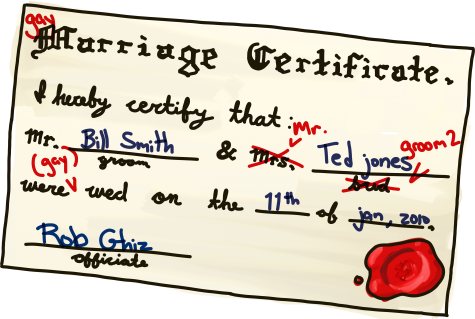 gay
Marriage Certificate.
I hereby certify that:
Mr. Bill Smith & Mrs. Mr. Ted jones
groom brid groom 2
(gay)
were wed on the 11th of jan, 2010.
Rob Ghiz
officiate